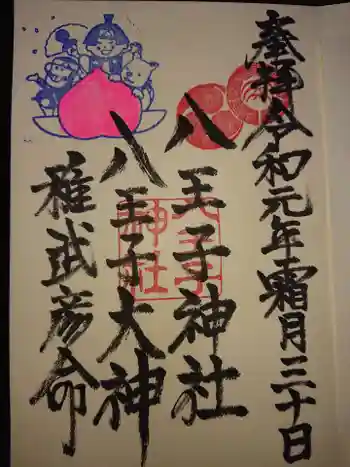 奉拝令和元年霜月三十日
八王子神社
八王子大神
稚武彦命